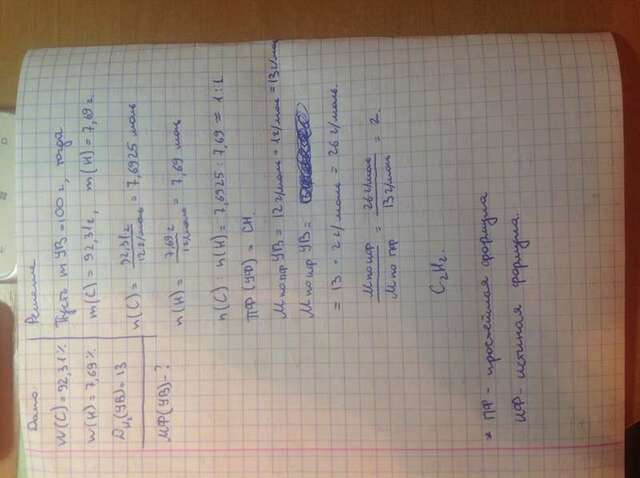 Дано
W(C) = 92,31%
W(H) = 7,69%
D H₂(УВ) = 13
МФ(УВ) - ?
Решение
Пусть m УВ = 100г, тогда
m(C) = 92,31г, m(H) = 7,69г
n(C) = 92,31г / 12г/моль = 7,6925 моль
n(H) = 7,69г / 1г/моль = 7,69 моль
n(C) : n(H) = 7,6925 : 7,69 = 1 : 1
ПФ (УФ) = CH.
M по пф УВ = 12г/моль + 1г/моль = 13г/моль
M по иф УВ =
= 13 · 2 г/моль = 26 г/моль.
M по иф / M по пф = 26г/моль / 13г/моль = 2.
C₂H₂.
* ПФ - простейшая формула
ИФ - истиная формула.